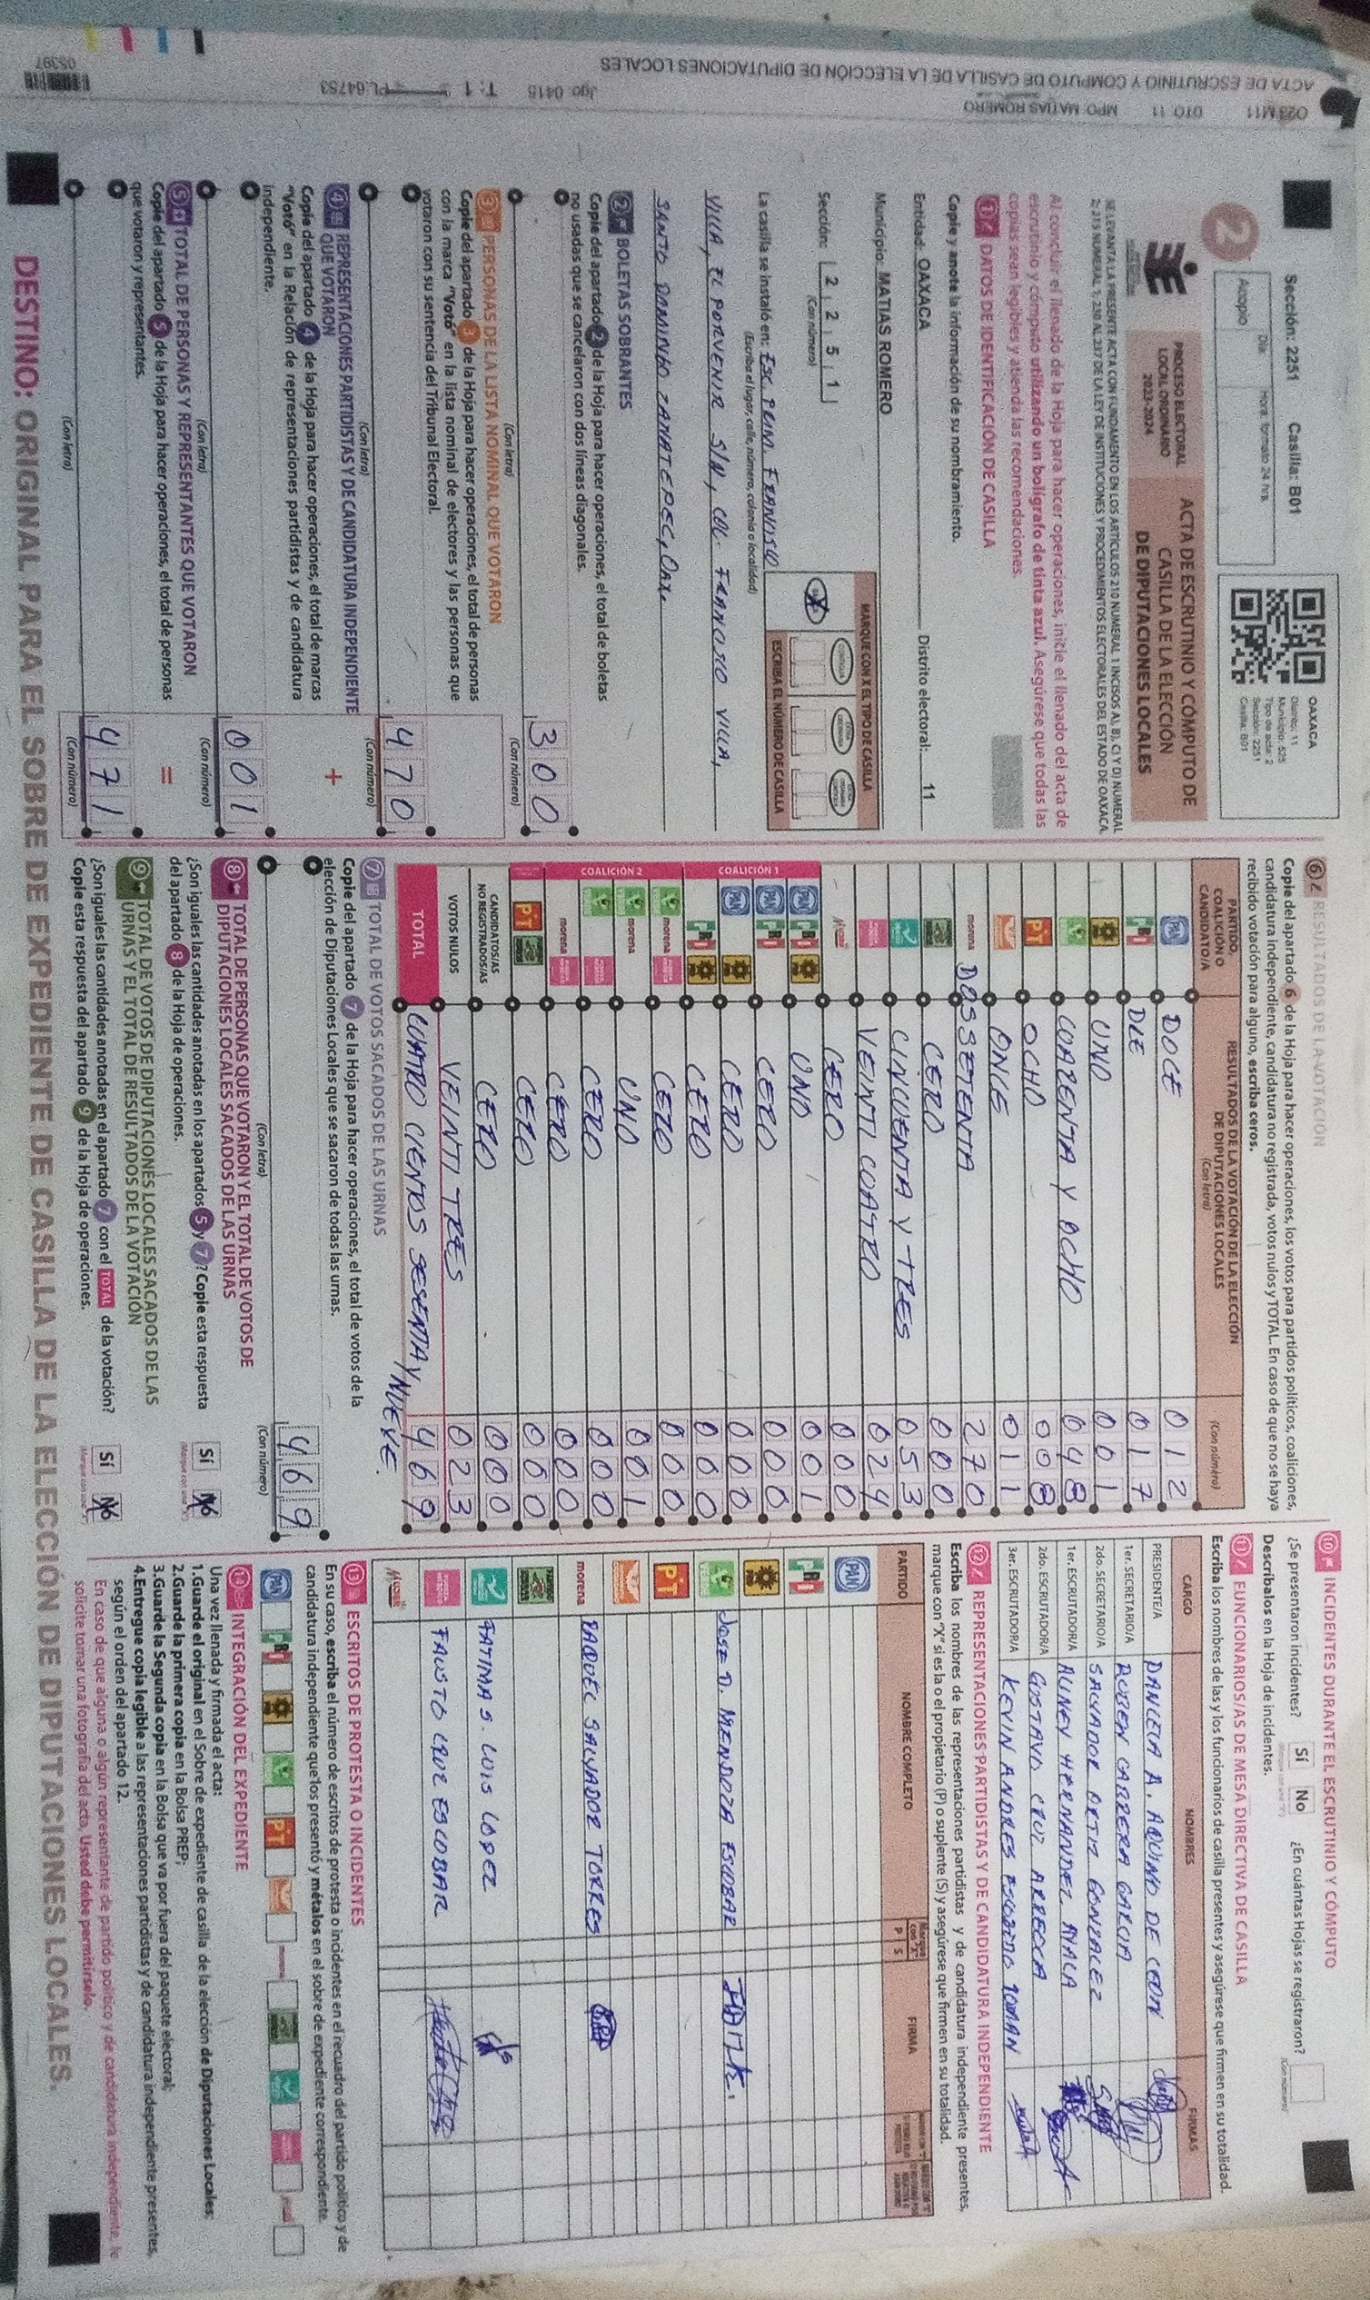 ACTA DE ESCRUTINIO Y CÓMPUTO DE CASILLA DE LA ELECCIÓN DE DIPUTACIONES LOCALES
023 M11 DTO. 11 MPO. MATIAS ROMERO
Jgo: 0415 T: 1 PL:64753
05397
Sección: 2251 Casilla: B01
Día: Hora: formato 24 hrs.
Acopio
2
OAXACA
Distrito: 11
Municipio: 525
Tipo de acta: 2
Sección: 2251
Casilla: B01
PROCESO ELECTORAL
LOCAL ORDINARIO
2023-2024
ACTA DE ESCRUTINIO Y CÓMPUTO DE
CASILLA DE LA ELECCIÓN
DE DIPUTACIONES LOCALES
SE LEVANTA LA PRESENTE ACTA CON FUNDAMENTO EN LOS ARTÍCULOS 210 NUMERAL 1 INCISOS A), B), C) Y D) NUMERAL
2; 215 NUMERAL 1; 230 AL 237 DE LA LEY DE INSTITUCIONES Y PROCEDIMIENTOS ELECTORALES DEL ESTADO DE OAXACA.
Al concluir el llenado de la Hoja para hacer operaciones, inicie el llenado del acta de
escrutinio y cómputo utilizando un bolígrafo de tinta azul. Asegúrese que todas las
copias sean legibles y atienda las recomendaciones.
1 DATOS DE IDENTIFICACIÓN DE CASILLA
Copie y anote la información de su nombramiento.
Entidad: OAXACA Distrito electoral: 11
Municipio: MATIAS ROMERO
Sección: 2 2 5 1
(Con número)
MARQUE CON X EL TIPO DE CASILLA
ESCRIBA EL NÚMERO DE CASILLA
La casilla se instaló en: ESC. PRIM. FRANCISCO
(Escriba el lugar, calle, número, colonia o localidad)
VILLA, EL PORVENIR S/N, COL. FRANCISCO VILLA,
SANTO DOMINGO ZANATEPEC, OAX.
2 BOLETAS SOBRANTES
Copie del apartado 2 de la Hoja para hacer operaciones, el total de boletas
no usadas que se cancelaron con dos líneas diagonales.
300
(Con letra) (Con número)
3 PERSONAS DE LA LISTA NOMINAL QUE VOTARON
Copie del apartado 3 de la Hoja para hacer operaciones, el total de personas
con la marca "Votó" en la lista nominal de electores y las personas que
votaron con su sentencia del Tribunal Electoral.
470
(Con letra) (Con número)
4 REPRESENTACIONES PARTIDISTAS Y DE CANDIDATURA INDEPENDIENTE
QUE VOTARON
+
Copie del apartado 4 de la Hoja para hacer operaciones, el total de marcas
"Votó" en la Relación de representaciones partidistas y de candidatura
independiente.
001
(Con letra) (Con número)
5 TOTAL DE PERSONAS Y REPRESENTANTES QUE VOTARON
=
Copie del apartado 5 de la Hoja para hacer operaciones, el total de personas
que votaron y representantes.
471
(Con letra) (Con número)
6 RESULTADOS DE LA VOTACIÓN
Copie del apartado 6 de la Hoja para hacer operaciones, los votos para partidos políticos, coaliciones,
candidatura independiente, candidatura no registrada, votos nulos y TOTAL. En caso de que no se haya
recibido votación para alguno, escriba ceros.
PARTIDO, COALICIÓN O CANDIDATO/A
RESULTADOS DE LA VOTACIÓN DE LA ELECCIÓN DE DIPUTACIONES LOCALES
(Con letra) (Con número)
PAN DOCE 012
PRI 017
UNO 001
CUARENTA Y OCHO 048
PT OCHO 008
ONCE 011
morena DOSSETENTA 270
CERO 000
CINCUENTA Y TRES 053
VEINTI CUATRO 024
CERO 000
COALICIÓN 1
PAN PRI UNO 001
PAN PRI CERO 000
PAN CERO 000
PRI CERO 000
COALICIÓN 2
morena CERO 000
morena UNO 001
CERO 000
morena CERO 000
PT CERO 000
CANDIDATOS/AS
NO REGISTRADOS/AS CERO 000
VOTOS NULOS VEINTI TRES 023
TOTAL CUATRO CIENTOS SESENTA Y NUEVE. 469
7 TOTAL DE VOTOS SACADOS DE LAS URNAS
Copie del apartado 7 de la Hoja para hacer operaciones, el total de votos de la
elección de Diputaciones Locales que se sacaron de todas las urnas.
469
(Con letra) (Con número)
8 TOTAL DE PERSONAS QUE VOTARON Y EL TOTAL DE VOTOS DE
DIPUTACIONES LOCALES SACADOS DE LAS URNAS
¿Son iguales las cantidades anotadas en los apartados 5 y 7? Copie esta respuesta
del apartado 8 de la Hoja de operaciones.
Sí No
9 TOTAL DE VOTOS DE DIPUTACIONES LOCALES SACADOS DE LAS
URNAS Y EL TOTAL DE RESULTADOS DE LA VOTACIÓN
¿Son iguales las cantidades anotadas en el apartado 7 con el TOTAL de la votación?
Copie esta respuesta del apartado 9 de la Hoja de operaciones.
Sí No
10 INCIDENTES DURANTE EL ESCRUTINIO Y CÓMPUTO
¿Se presentaron incidentes? Sí No ¿En cuántas Hojas se registraron?
Descríbalos en la Hoja de incidentes.
11 FUNCIONARIOS/AS DE MESA DIRECTIVA DE CASILLA
Escriba los nombres de las y los funcionarios de casilla presentes y asegúrese que firmen en su totalidad.
CARGO NOMBRES FIRMAS
PRESIDENTE/A DANCELA A. AQUINO DE LEON
1er. SECRETARIO/A RUBEN CABRERA GARCIA
2do. SECRETARIO/A SALVADOR ORTIZ GONZALEZ
1er. ESCRUTADOR/A ALINEY HERNANDEZ AYALA
2do. ESCRUTADOR/A GUSTAVO CRUZ ARREOLA
3er. ESCRUTADOR/A KEVIN ANDRES ROMAN
12 REPRESENTACIONES PARTIDISTAS Y DE CANDIDATURA INDEPENDIENTE
Escriba los nombres de las representaciones partidistas y de candidatura independiente presentes,
marque con "X" si es la o el propietario (P) o suplente (S) y asegúrese que firmen en su totalidad.
PARTIDO NOMBRE COMPLETO P S FIRMA
PAN
PRI
JOSE D. MENDOZA ESCOBAR
PT
morena RAQUEL SALVADOR TORRES
FATIMA S. LUIS LOPEZ
FAUSTO CRUZ ESCOBAR
13 ESCRITOS DE PROTESTA O INCIDENTES
En su caso, escriba el número de escritos de protesta o incidentes en el recuadro del partido político y de
candidatura independiente que los presentó y métalos en el sobre de expediente correspondiente.
PAN PRI PT
14 INTEGRACIÓN DEL EXPEDIENTE
Una vez llenada y firmada el acta:
1.Guarde el original en el Sobre de expediente de casilla de la elección de Diputaciones Locales;
2.Guarde la primera copia en la Bolsa PREP;
3.Guarde la Segunda copia en la Bolsa que va por fuera del paquete electoral;
4.Entregue copia legible a las representaciones partidistas y de candidatura independiente presentes,
según el orden del apartado 12.
En caso de que alguna o algún representante de partido político y de candidatura independiente, le
solicite tomar una fotografía del acta, Usted debe permitírselo.
DESTINO: ORIGINAL PARA EL SOBRE DE EXPEDIENTE DE CASILLA DE LA ELECCIÓN DE DIPUTACIONES LOCALES.